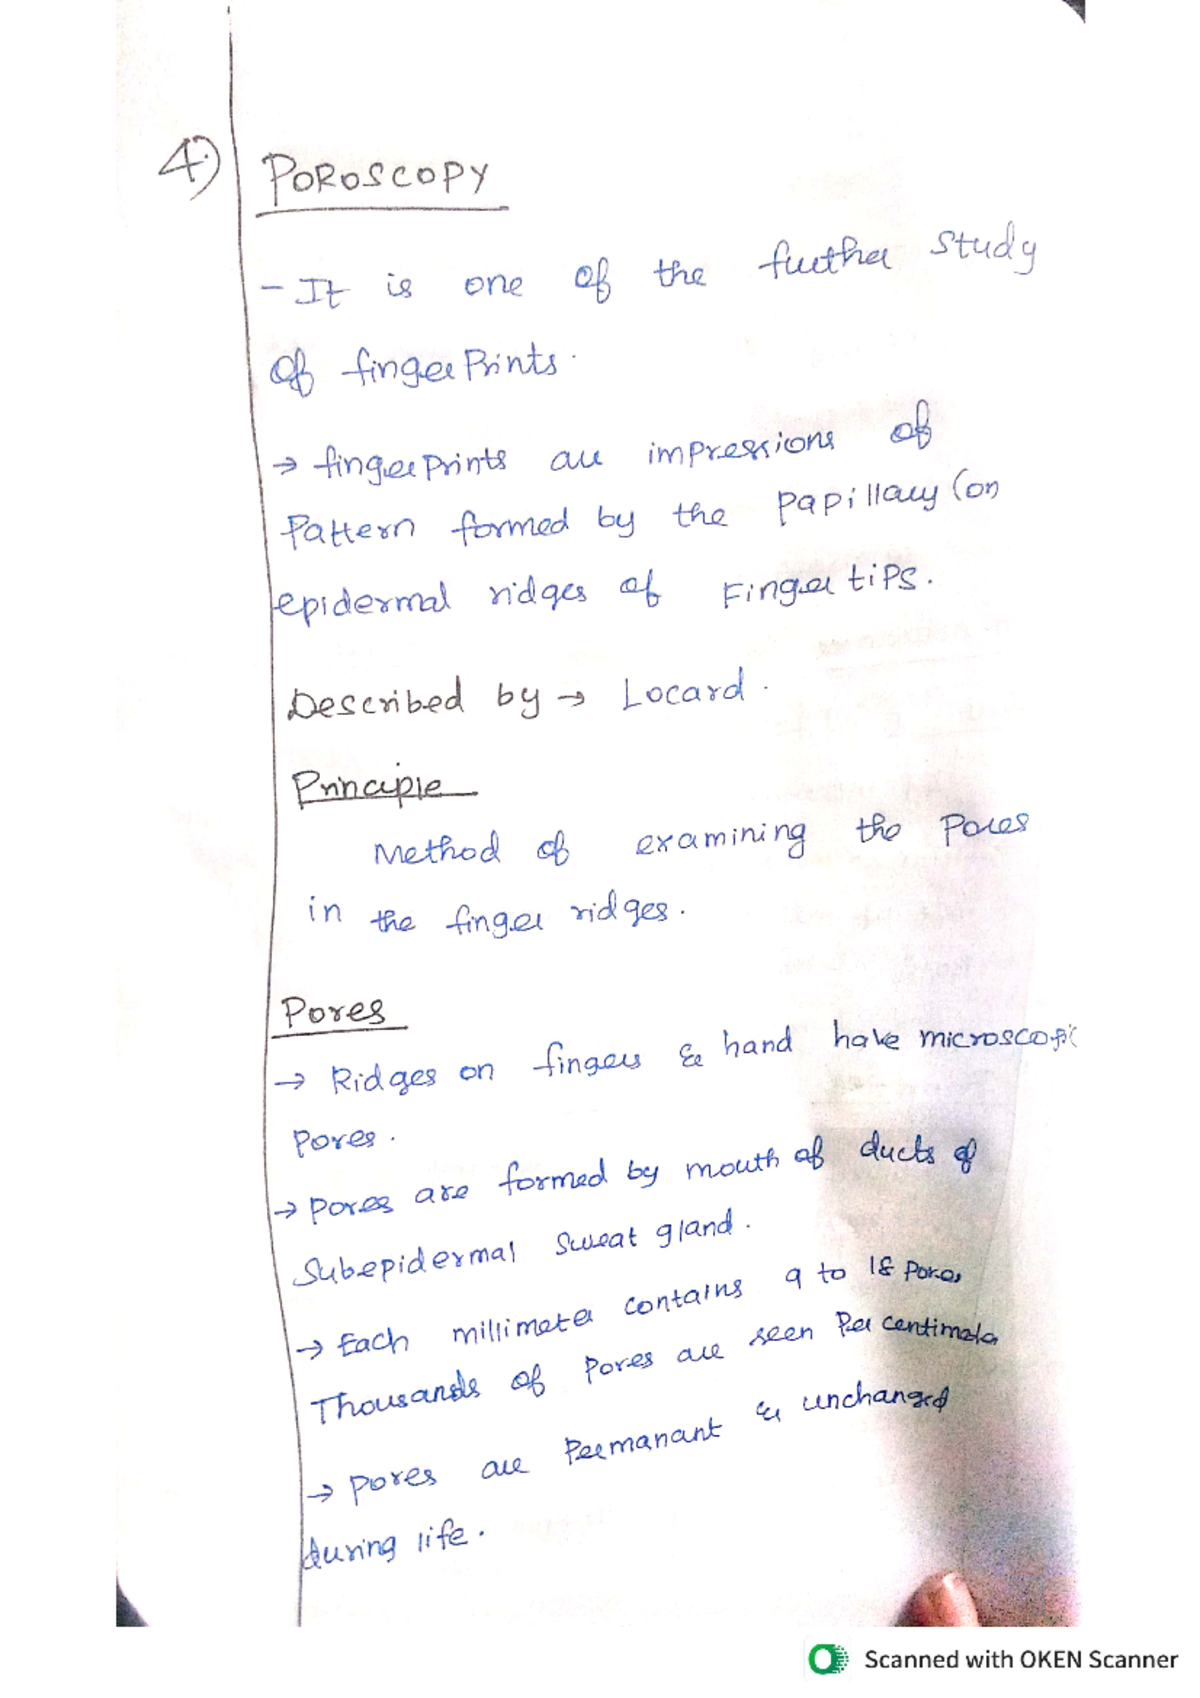 4.) POROSCOPY
- It is one of the further study
of fingerprints.
→ fingerprints are impressions of
Pattern formed by the papillary (or)
epidermal ridges of Finger tips.
Described by → Locard.
Principle
Method of examining the Pores
in the finger ridges.
Pores
→ Ridges on fingers & hand have microscopic
Pores.
→ Pores are formed by mouth of ducts of
Subepidermal Sweat gland.
→ Each millimeter contains 9 to 18 Pores
Thousands of Pores are seen Per centimeter
→ Pores are Permanant & unchanged
during life.
Scanned with OKEN Scanner